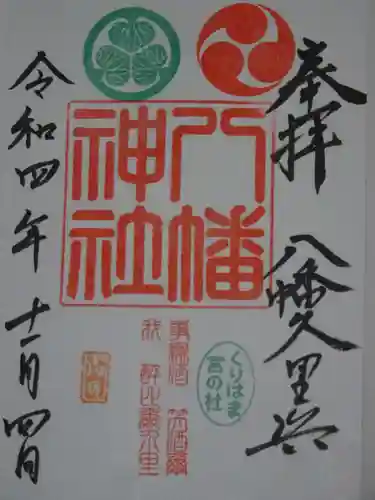 奉拝 八幡久里浜
八幡
神社
くりはま
令和四年 十一月四日